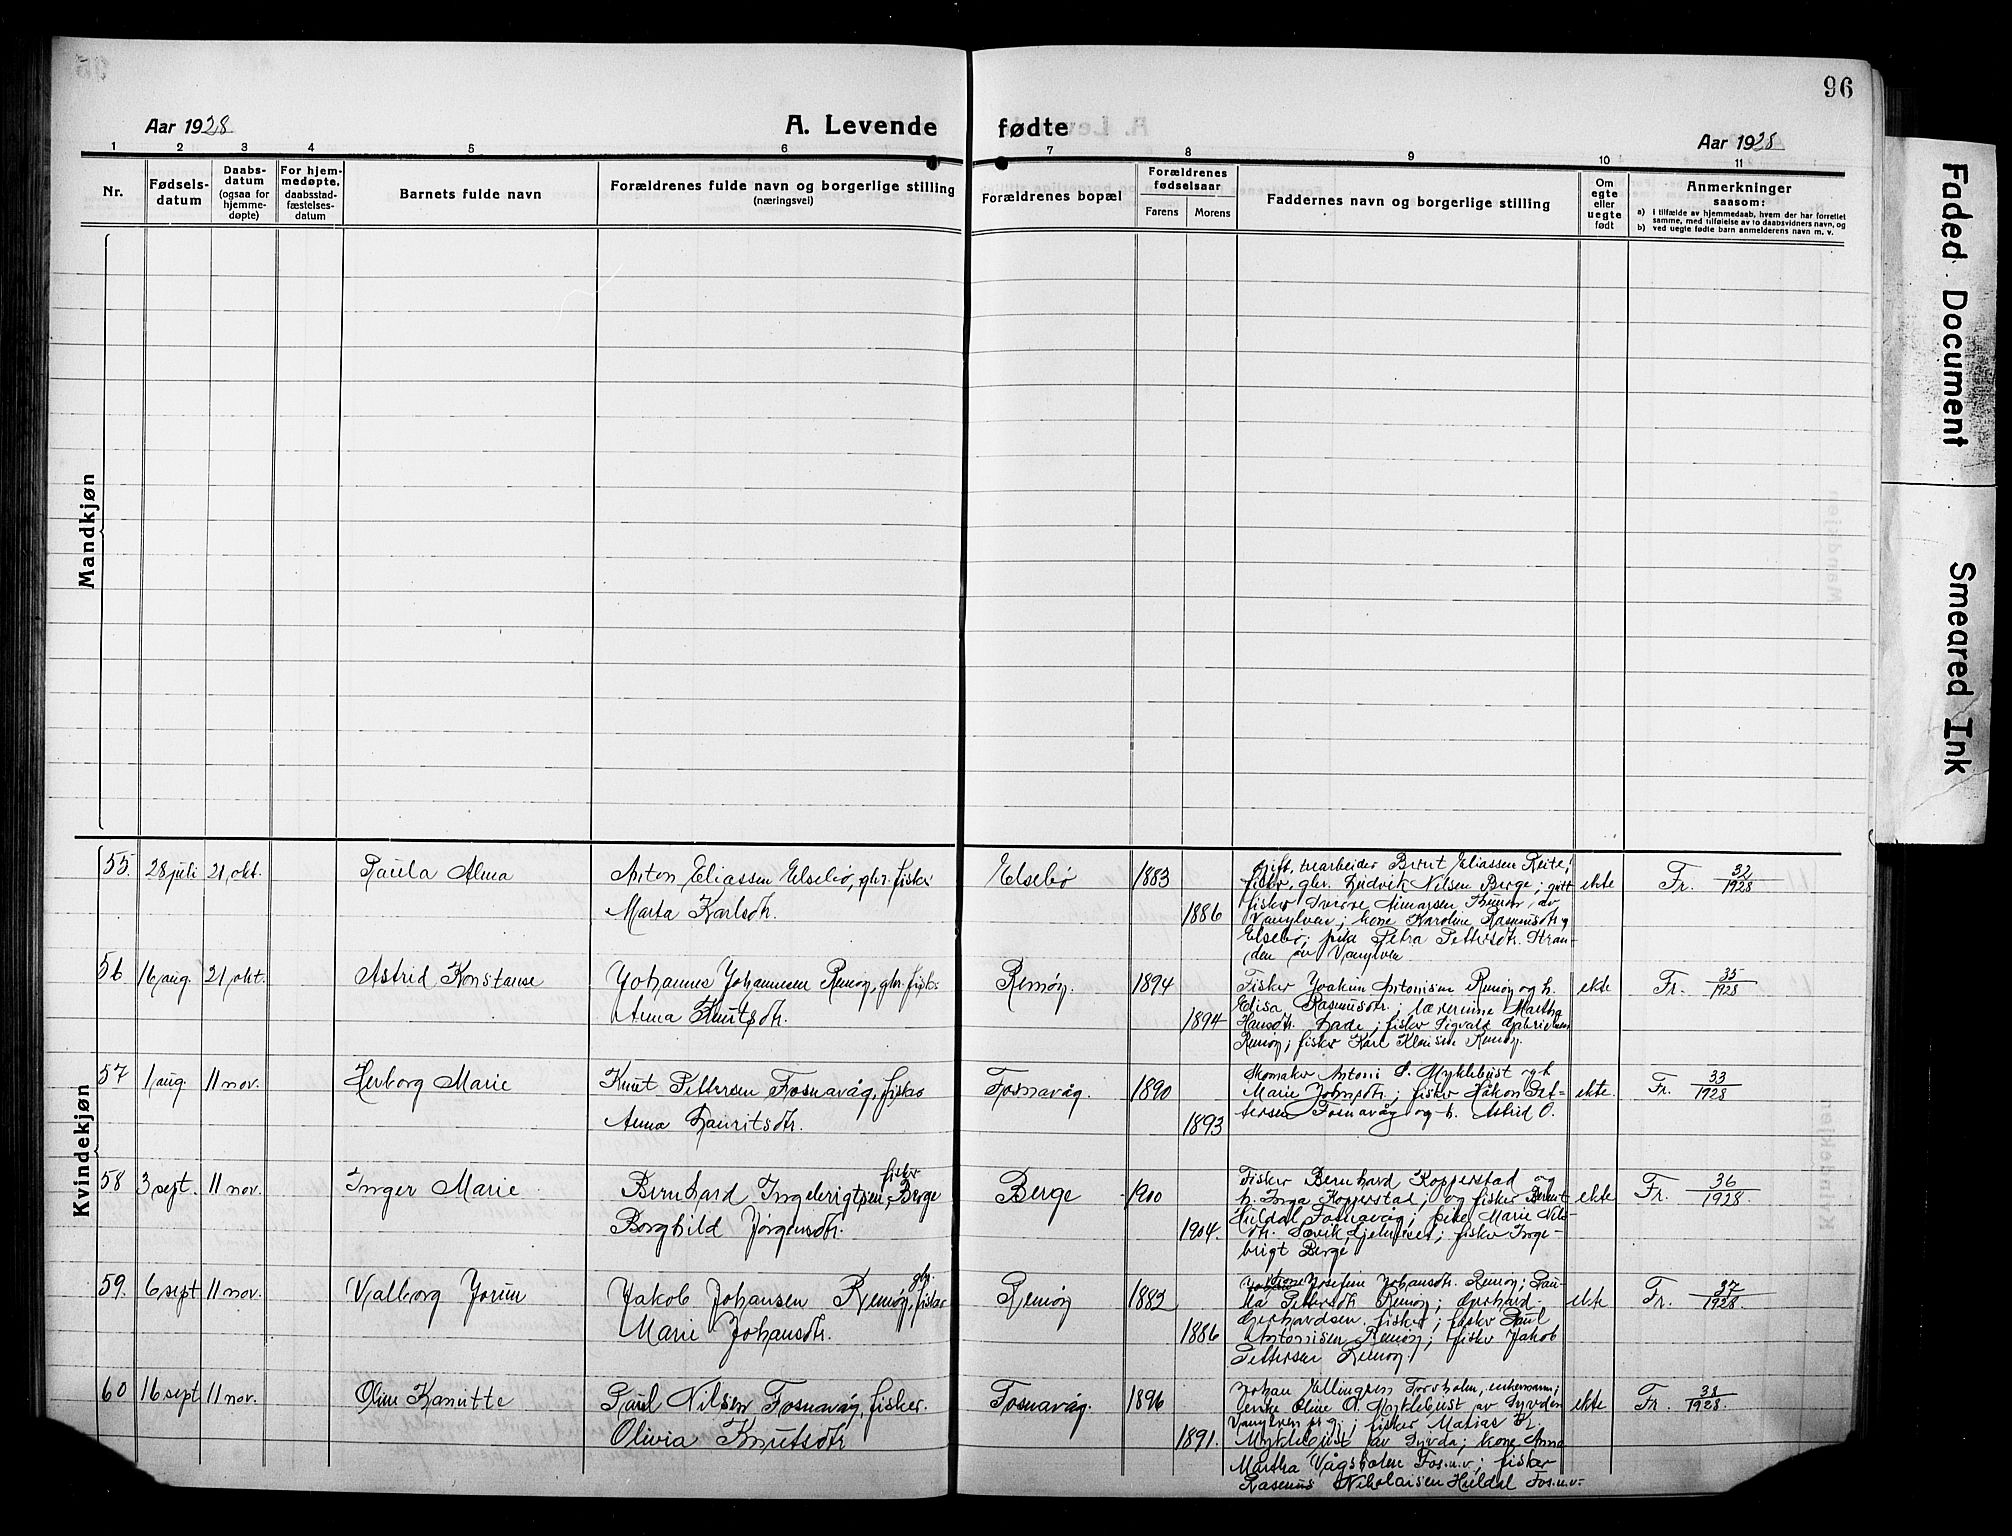 96
Aar 1928
A. Levende fødte
Aar 1928
1 2 3 4 5 6 7 8 9 10 11
Nr.
Fødsels-
datum
Daabs-
datum
(ogsaa for
hjemme-
døpte)
For hjem-
medøpte,
daabsstad-
fæstelses-
datum
Barnets fulde navn
Forældrenes fulde navn og borgerlige stilling
(næringsvei)
Forældrenes bopæl
Forældrenes
fødselsaar
Farens Morens
Faddernes navn og borgerlige stilling
Om
egte
eller
uegte
født
Anmerkninger
saasom:
a) i tilfælde av hjemmedaab, hvem der har forrettet
samme, med tilføielse av to daabsvidners navn, og
b) ved uegte fødte barn anmelderens navn m. v.
Mandkjøn
Kvindekjøn
55. 28 juli 21, okt. Paula Alma
Anton Eliassen Elsebø, gbr. fisker
Marta Karlsdtr.
Elsebø 1883
1886
gift, trearbeider Bernt Eliassen Reite;
fisker, gbr. Ludvik Nilsen Berge; gift
fisker Sverre Aimarsen av
Vanylven; kone Karoline Rasmusdtr
Elsebø; pike Petra Pettersdtr. Stran-
den av Vanylven
ekte Fr. 32/1928
56 16, aug. 21, okt. Astrid Konstanse
Johannes Johannesen Remøy, gbr. fisker
Anna Knutsdtr.
Remøy. 1894
1894
Fisker Joakim Antonisen Remøy og h.
Elisa Rasmusdtr.; lærerinne Martha
Hansdtr. Lade; fisker Sigvald Gabrielsen
Remøy; fisker Karl Klausen Remøy.
ekte Fr. 35/1928
57 1 aug. 11 nov. Herborg Marie
Knut Pettersen Fosnavåg, fisker
Anna Lauritsdtr.
Fosnavåg. 1890
1893
Skomaker Antoni S. Myklebust og h
Marie Johnsdtr.; fisker Håkon Pet-
tersen Fosnavåg og h. Astrid O.
ekte. Fr. 33/1928
58 3 sept. 11 nov. Inger Marie
Bernhard Ingebrigtsen, fisker Berge
Borghild Jørgensdtr.
Berge 1900
1904.
Fisker Bernhard Kopperstad og
h. Inga Kopperstad; og fisker Bernt
Huldal Fosnavåg; pike Marie Nils-
dtr. Sævik, fisker Inge-
brigt Berge
ekte Fr. 36/1928.
59. 6 sept 11 nov. Valborg Jorun
Jakob Johansen Remøy, gbr. fisker
Marie Johansdtr.
Remøy 1883
1886
Josefine Johansdtr. Remøy; Pau-
la Pettersdtr Remøy; Gerhard
Gerhardsen fisker; fisker Paul
Antonisen Remøy; fisker Jakob
Pettersen Remøy
ekte Fr. 37/1928.
60 16 sept 11 nov. Oline Kanutte
Paul Nilsen Fosnavåg, fisker.
Olivia Knutsdtr
Fosnavåg. 1896
1891.
Johan Ellingsen Torvholm, enkemann;
enke Oline O. Myklebust av Syvden
Vanylven pr.gj.; fisker Matias Kr.
Myklebust av Syvde; kone Anna
Martha Vågsholm Fos.n.v; fisker
Rasmus Nikolaisen Huldal Fos.n.v.
ekte Fr. 38/1928.
Faded Document
Smeared Ink